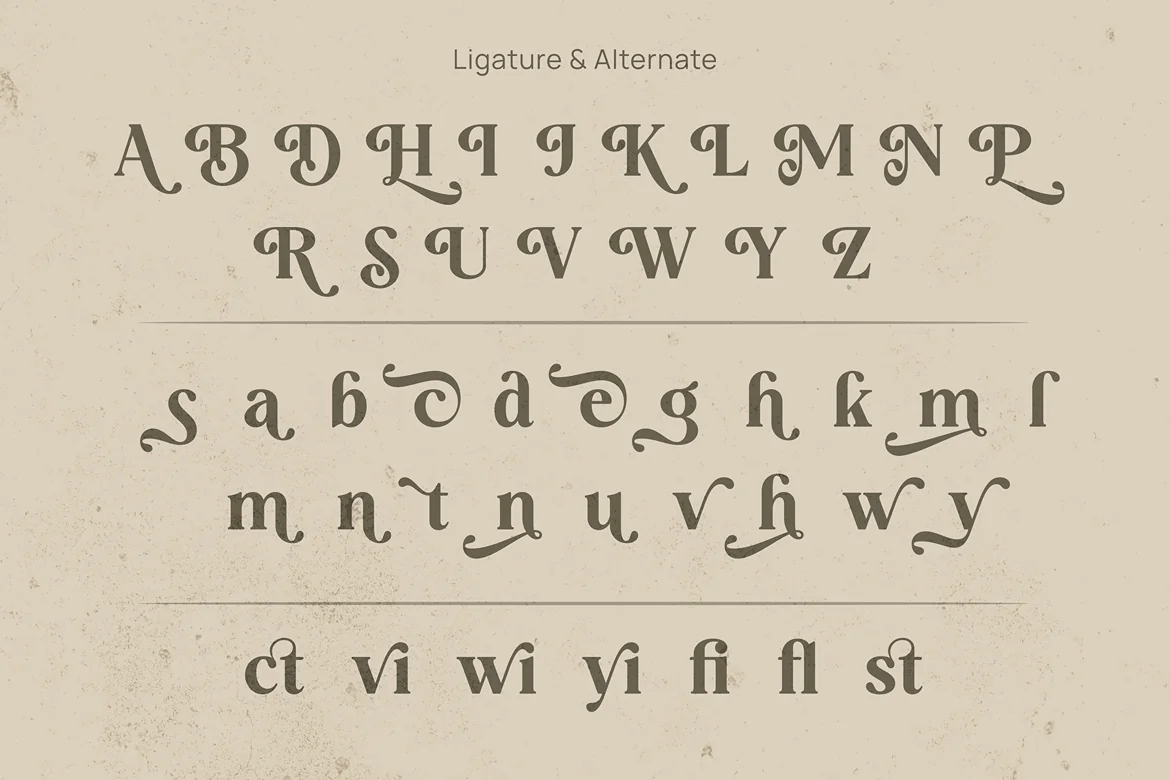 Ligature & Alternate
A B D H I J K L M N P
R S U V W Y Z
s a b c d e g h k m l
m n t n u v h w y
ct vi wi yi fi fl st